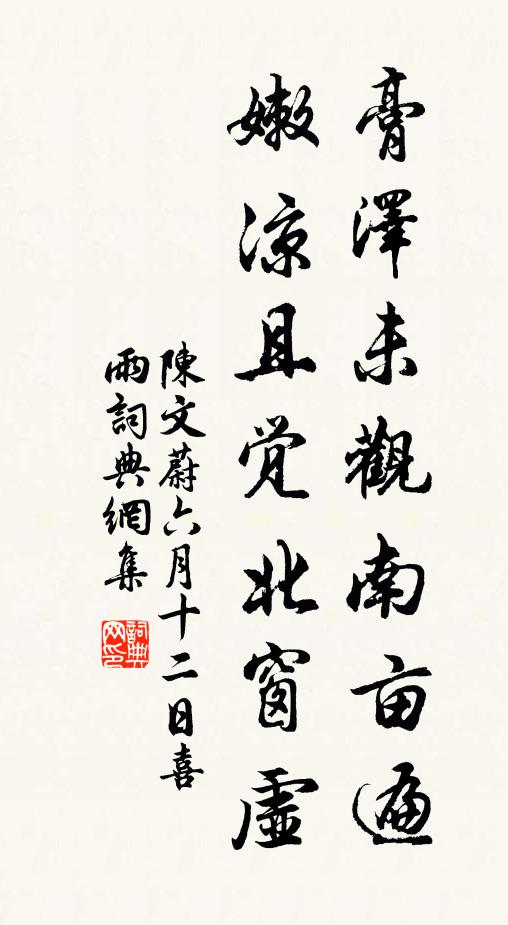 膏澤未觀南亩遍
嫩凉且觉北窗虛
陳文蔚六月十二日喜
雨詞典網集
詞典
网印